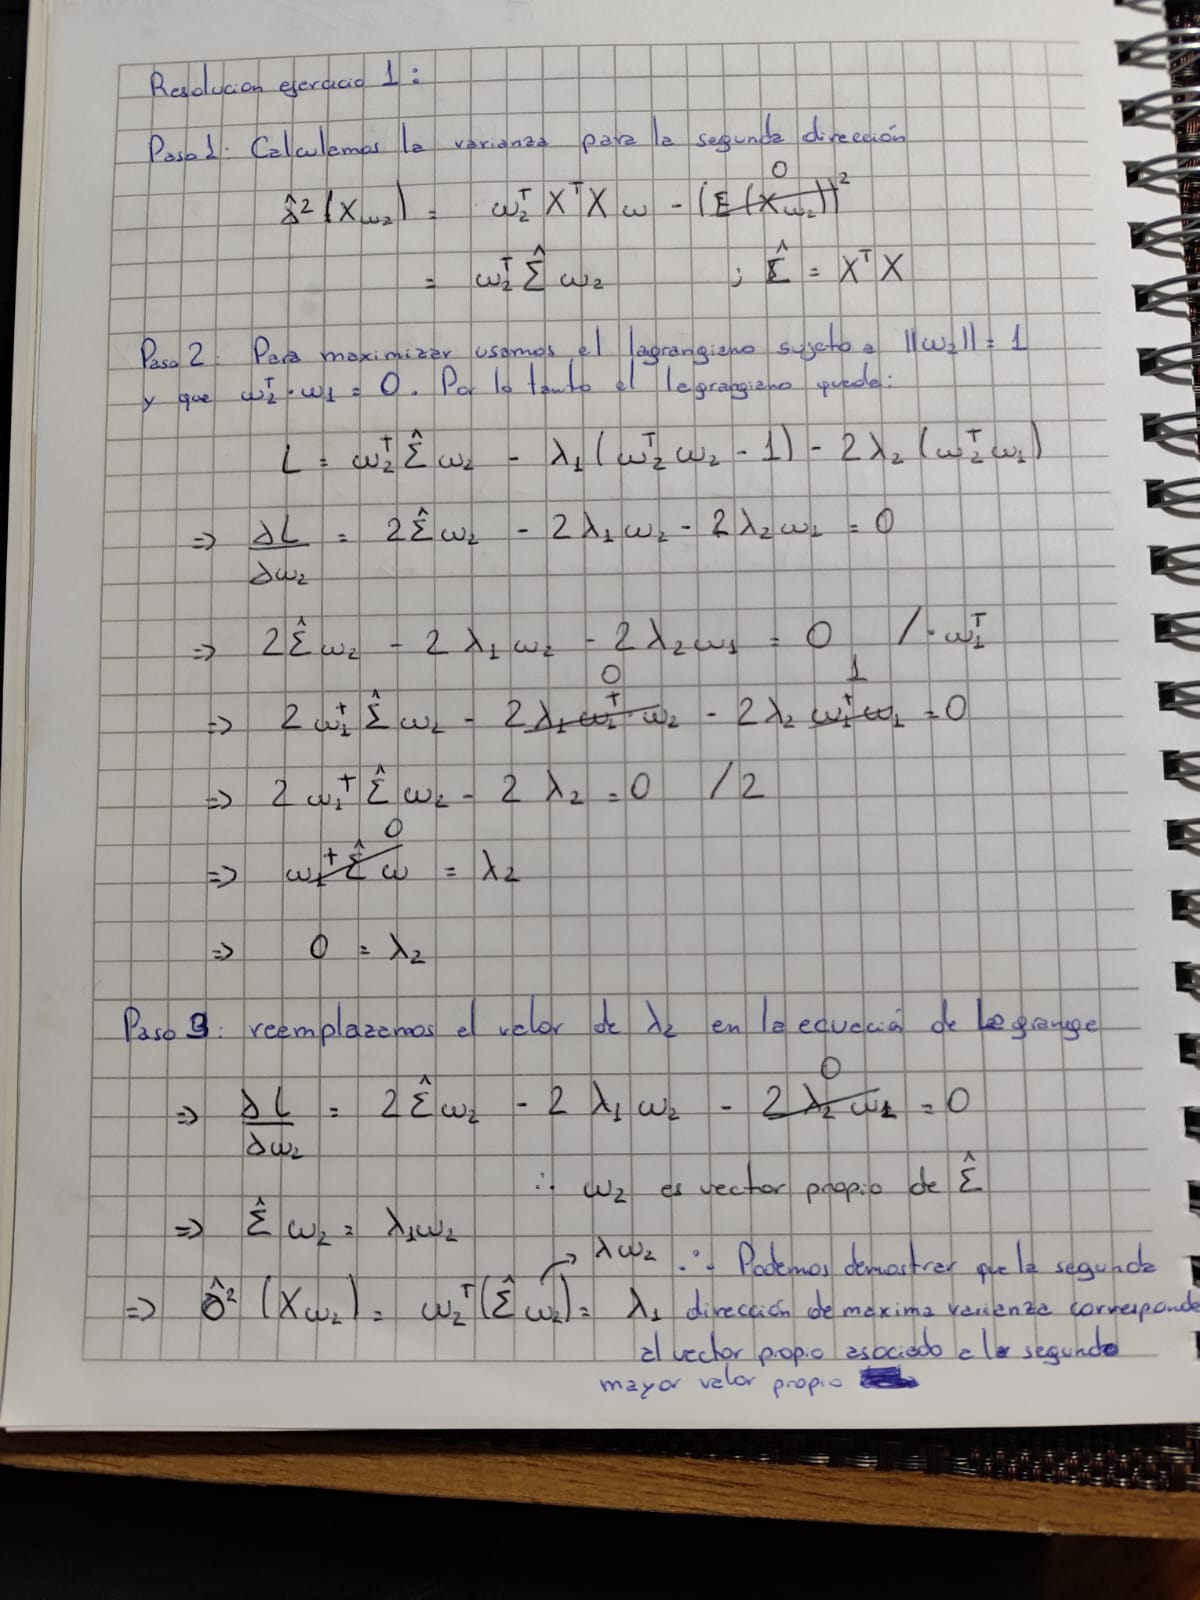 Resolucion ejercicio 1:
Paso 1: Calculamos la varianza para la segunda dirección
σ̂² (Xω₂) = ω₂ᵀ XᵀX ω - (E (Xω₂))² 0
= ω₂ᵀ Σ̂ ω₂ ; Σ̂ = XᵀX
Paso 2: Para maximizar usamos el lagrangiano sujeto a ||ω₂|| = 1
y que ω₂ᵀ·ω₁ = 0. Por lo tanto el lagrangiano queda:
L = ω₂ᵀ Σ̂ ω₂ - λ₁ (ω₂ᵀ ω₂ - 1) - 2λ₂ (ω₂ᵀ ω₁)
=> ∂L/∂ω₂ = 2Σ̂ω₂ - 2λ₁ω₂ - 2λ₂ω₁ = 0
=> 2Σ̂ω₂ - 2λ₁ω₂ - 2λ₂ω₁ = 0 /·ω₁ᵀ
=> 2ω₁ᵀ Σ̂ ω₂ - 2λ₁ω₁ᵀ·ω₂ 0 - 2λ₂ ω₁ᵀω₁ 1 = 0
=> 2ω₁ᵀ Σ̂ ω₂ - 2λ₂ = 0 /2
=> ω₁ᵀ Σ̂ ω 0 = λ₂
=> 0 = λ₂
Paso 3: reemplazamos el valor de λ₂ en la equeción de Lagrange
=> ∂L/∂ω₂ = 2Σ̂ω₂ - 2λ₁ω₂ - 2λ₂ω₁ 0 = 0
∴ ω₂ es vector propio de Σ̂
=> Σ̂ ω₂ = λ₁ω₂
=> σ̂² (Xω₂) = ω₂ᵀ(Σ̂ω₂) → λω₂ = λ₁
∴ Podemos demostrar que la segunda
dirección de maxima varianza corresponde
al vector propio asociado a la segundo
mayor valor propio